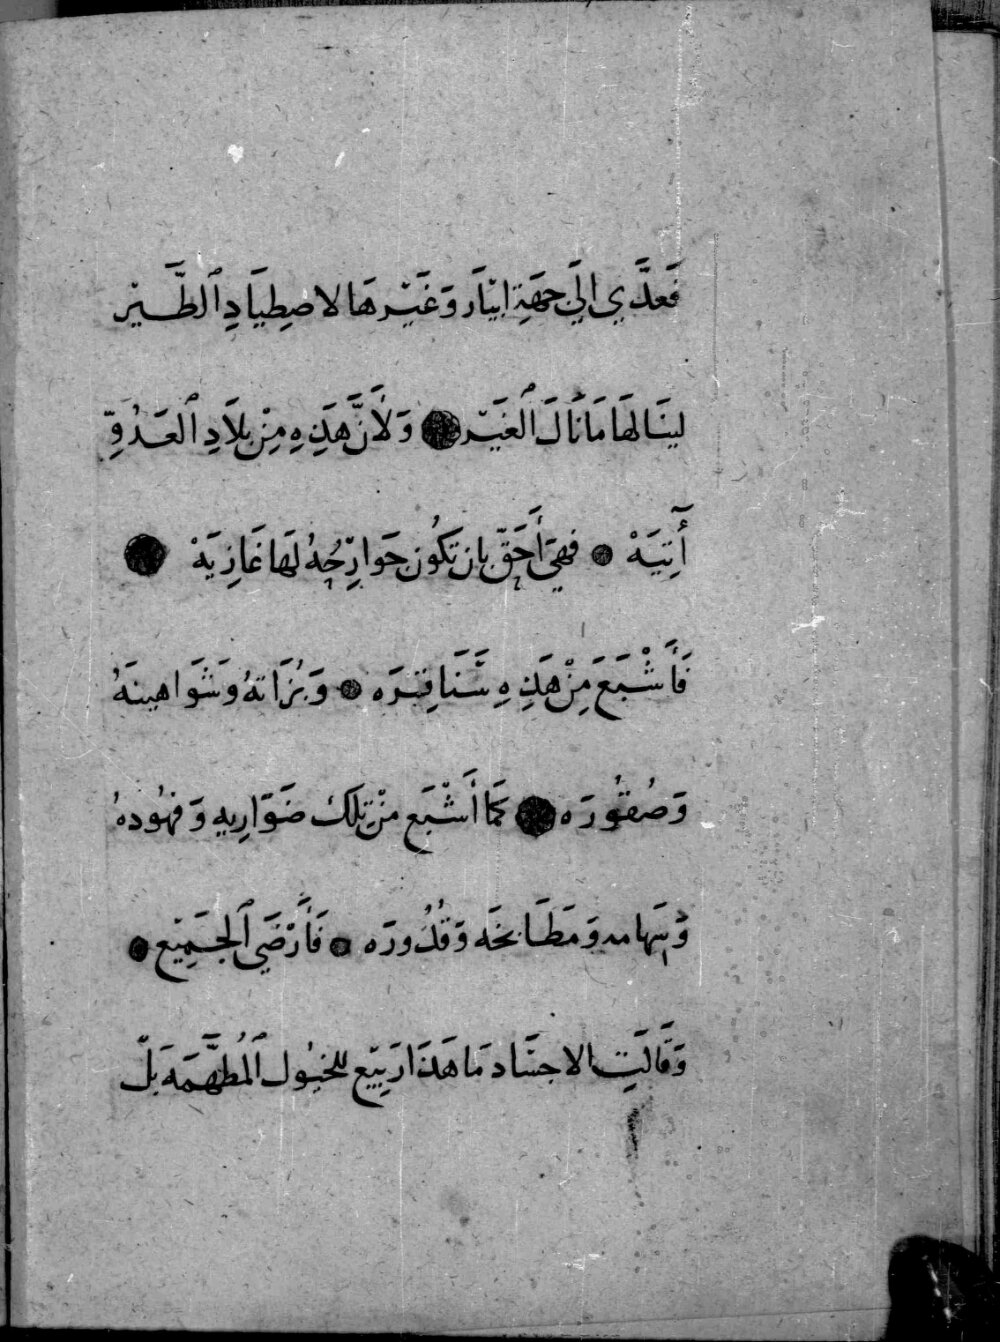 فَعَدَّي الَي جِهَةِ ابْيَار وَغَيْرِهَا لاصطِيَادِ ٱلطَّيْر
لينَالهَا مَا نَالَ ٱلْغَيْر وَلأَنَّ هَذِهِ مِنْ بِلاَدِ ٱلعَدُوِّ
أَتِيَهْ فهِيَ أَحَقّ بان تَكُون جَوارِحُهُ لهَا غَازِيَهْ
فَأَشْبَعَ مِنْ هَذِهِ سَنَاقِرَه وَبُزَاتهُ وشَوَاهينَهُ
وَصُقُورَه كَمَا أَشْبَع مِنْ تِلكَ ضَوَارِيهِ وَفهُودهُ
وَسِهَامه وَمَطَابخَه وَقُدُورَه فَأَرْضَي ٱلجَمِيْع
وَقَالَتِ الاجنَاد مَا هَذَا رَبِيْع للخيُول ٱلمُطَهَّمَه بَلْ